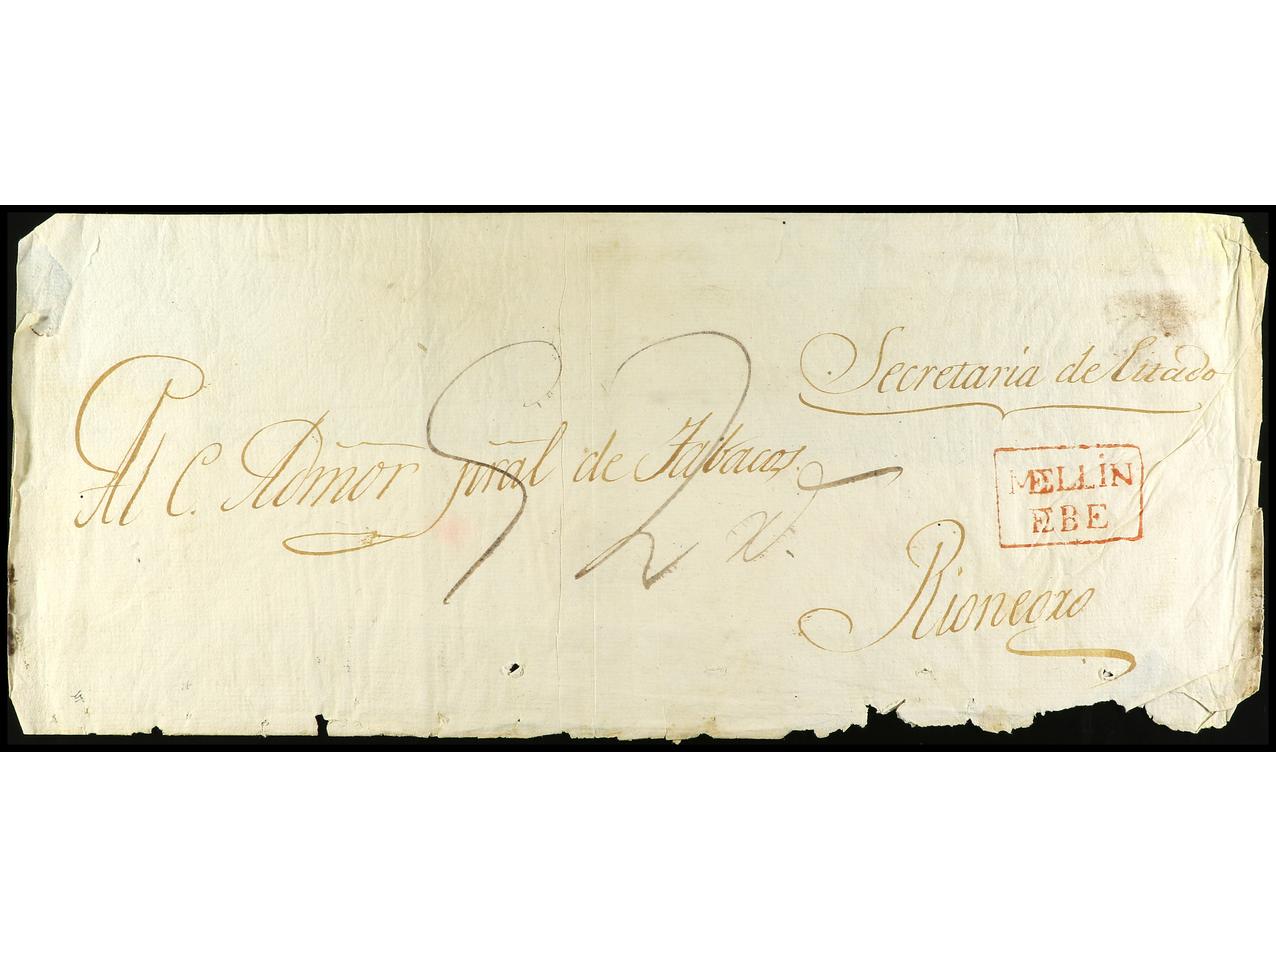 Secretaria de Estado
Al C. Admõr gñral de Tabacos.
MEDELLÍN
DEBE
Rionegro